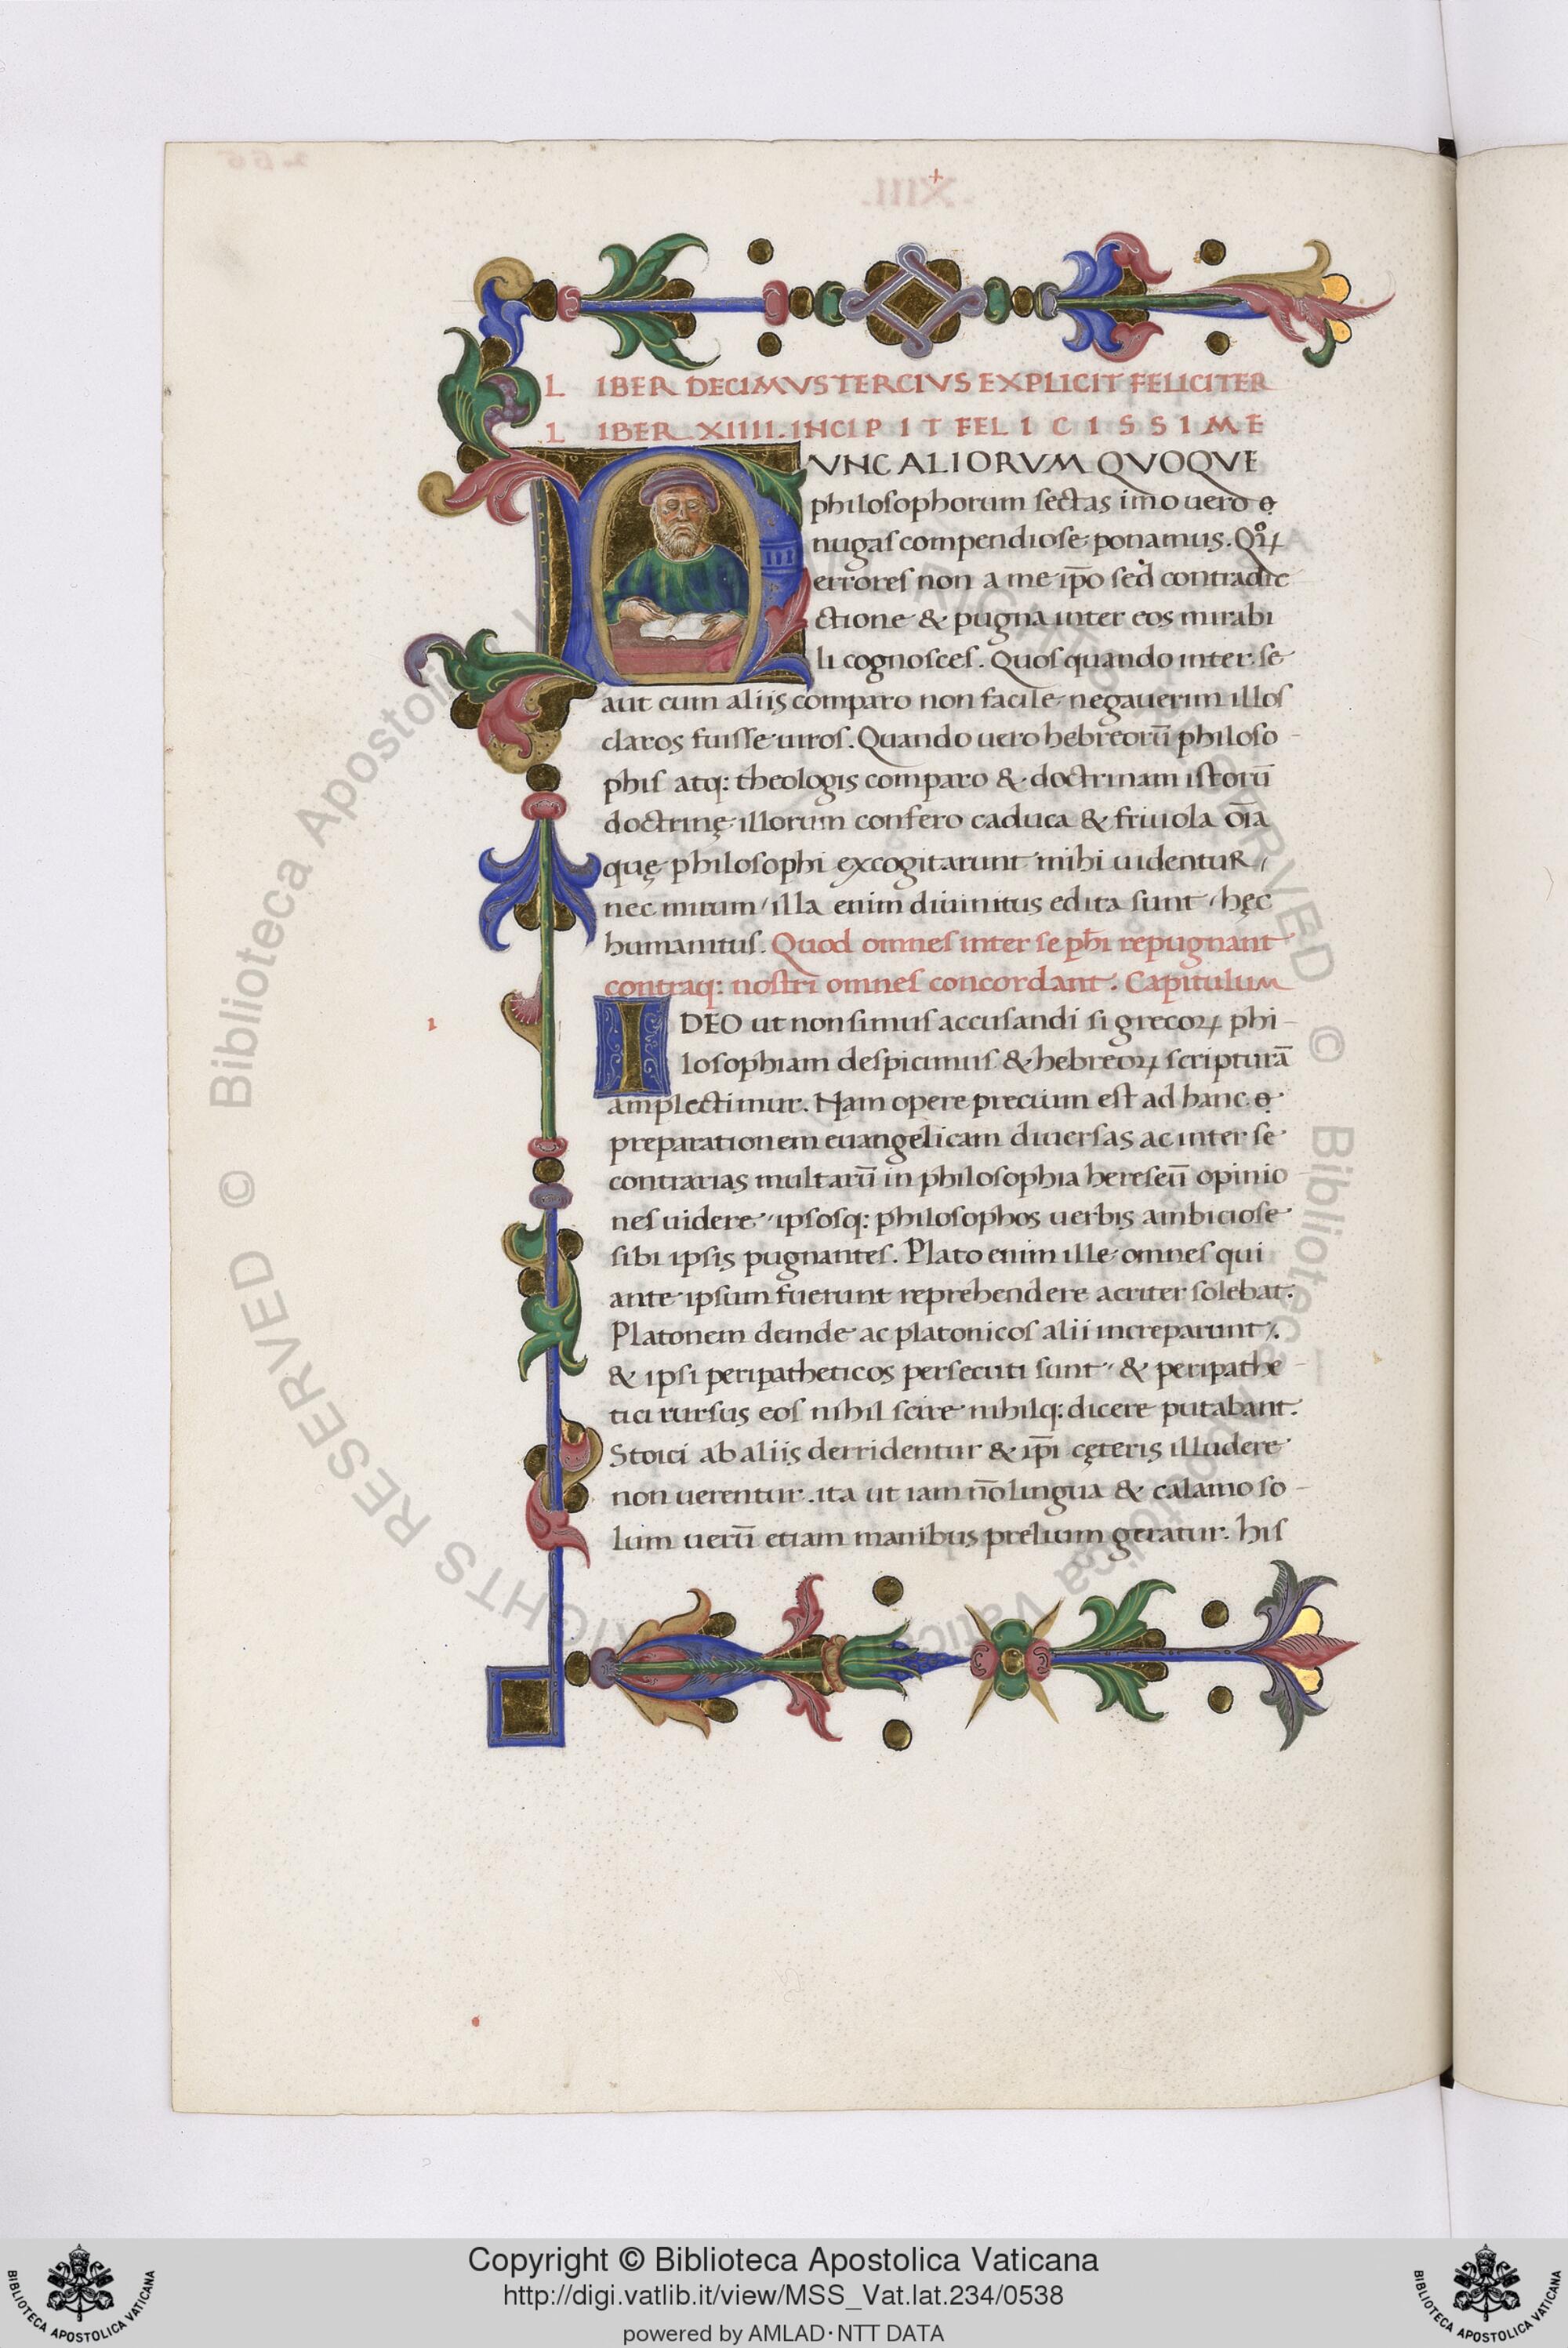 XIII.
LIBER DECIMVS TERCIVS EXPLICIT FELICITER
LIBER XIIII. INCIPIT FELICISSIME
NVNC ALIORVM QVOQVE
philosophorum sectas imo uero &
nugas compendiose ponamus. Quoꝝ
errores non a me ip̄o sed contradic
ctione & pugna inter eos mirabi
li cognosces. Quos quando inter se
aut cum aliis comparo non facile negauerim illos
claros fuisse uiros. Quando uero hebreorū philoso-
phis atq: theologis comparo & doctrinam istorū
doctrinę illorum confero caduca & friuola oīa
quę philosophi excogitarunt mihi uidentur /
nec mirum / illa enim diuinitus edita sunt / hęc
humanitus. Quod omnes inter se ph̄i repugnant
contraq: nostri omnes concordant. Capitulum
I
IDEO ut non simus accusandi si grecoꝝ phi-
losophiam despicimus & hebreoꝝ scripturā
amplectimur. Nam opere precium est ad hanc
preparationem euangelicam diuersas ac inter se
contrarias multarū in philosophia hereseū opinio-
nes uidere / ipsosq: philosophos uerbis ambiciose
sibi ipsis pugnantes. Plato enim ille omnes qui
ante ipsum fuerunt reprehendere acriter solebat.
Platonem deinde ac platonicos alii increparunt /.
& ipsi peripatheticos persecuti sunt / & peripathe-
tici rursus eos nihil scire nihilq: dicere putabant.
Stoici ab aliis derridentur & ip̄i cęteris illudere
non uerentur. ita ut iam nō lingua & calamo so-
lum uerū etiam manibus prelium geratur. his
© Biblioteca Apostolica Vaticana
RIGHTS RESERVED
Copyright © Biblioteca Apostolica Vaticana
http://digi.vatlib.it/view/MSS_Vat.lat.234/0538
powered by AMLAD·NTT DATA
BIBLIOTECA APOSTOLICA VATICANA
BIBLIOTECA APOSTOLICA VATICANA